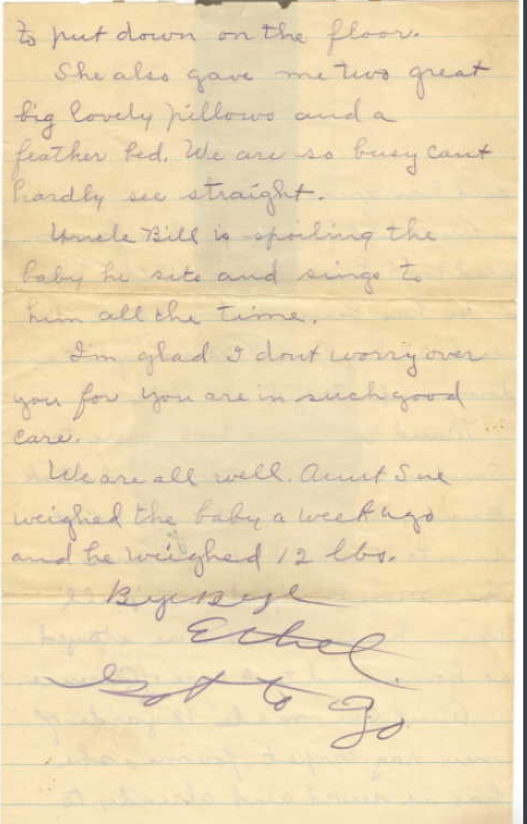 to put down on the floor.
She also gave me two great
big lovely pillows and a
feather bed. We are so busy cant
hardly see straight.
Uncle Bill is spoiling the
baby he sits and sings to
him all the time.
I'm glad I dont worry over
you for you are in such good
care.
We are all well. Aunt Sue
weighed the baby a week ago
and he weighed 12 lbs.
Bye Bye
Ethel.
Got to go